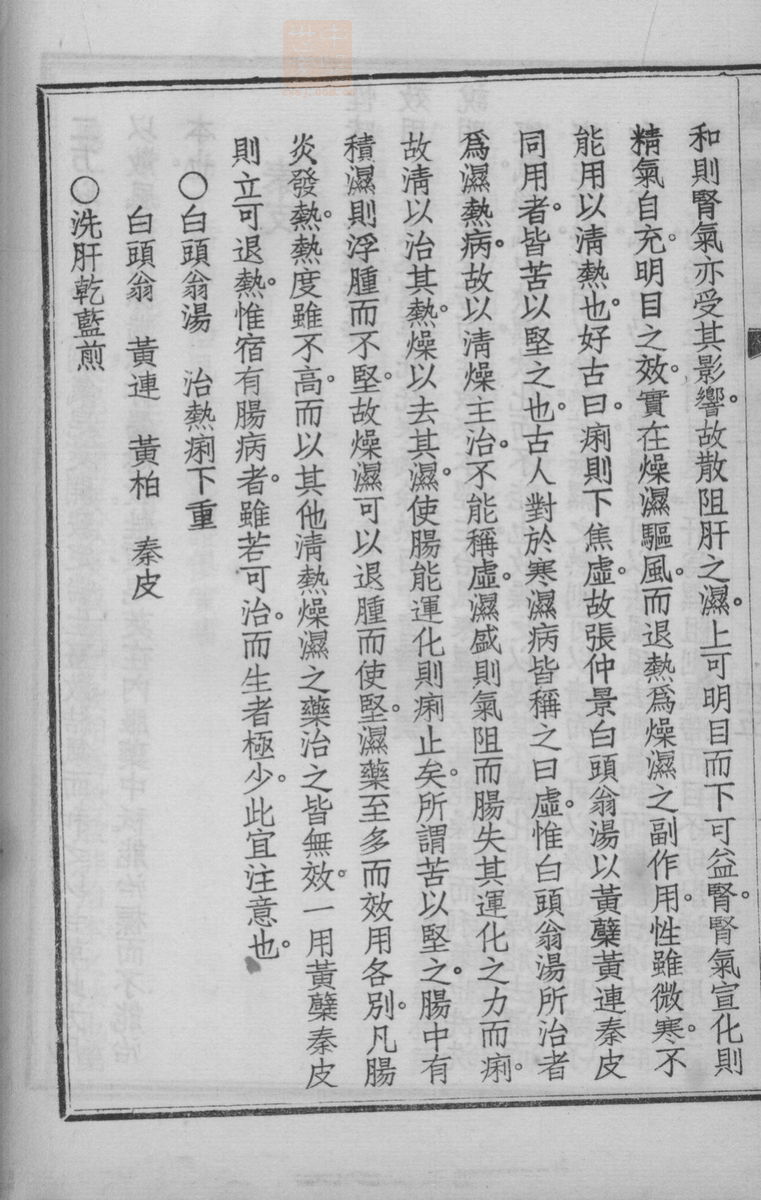 和則腎氣亦受其影響。故散阻肝之濕。上可明目而下可益腎。腎氣宣化則
精氣自充。明目之效。實在燥濕驅風。而退熱爲燥濕之副作用。性雖微寒。不
能用以清熱也。好古曰。痢則下焦虛。故張仲景白頭翁湯以黃蘗黃連秦皮
同用者。皆苦以堅之也。古人對於寒濕病皆稱之曰虛。惟白頭翁湯所治者
爲濕熱病。故以清燥主治。不能稱虛。濕盛則氣阻而腸失其運化之力而痢。
故清以治其熱。燥以去其濕。使腸能運化則痢止矣。所謂苦以堅之。腸中有
積濕則浮腫而不堅。故燥濕可以退腫而使堅。濕藥至多而效用各別。凡腸
炎發熱。熱度雖不高。而以其他清熱燥濕之藥治之皆無效。一用黃蘗秦皮
則立可退熱。惟宿有腸病者。雖若可治。而生者極少。此宜注意也。
〇白頭翁湯　治熱痢下重
白頭翁　黃連　黃柏　秦皮
〇洗肝乾藍煎